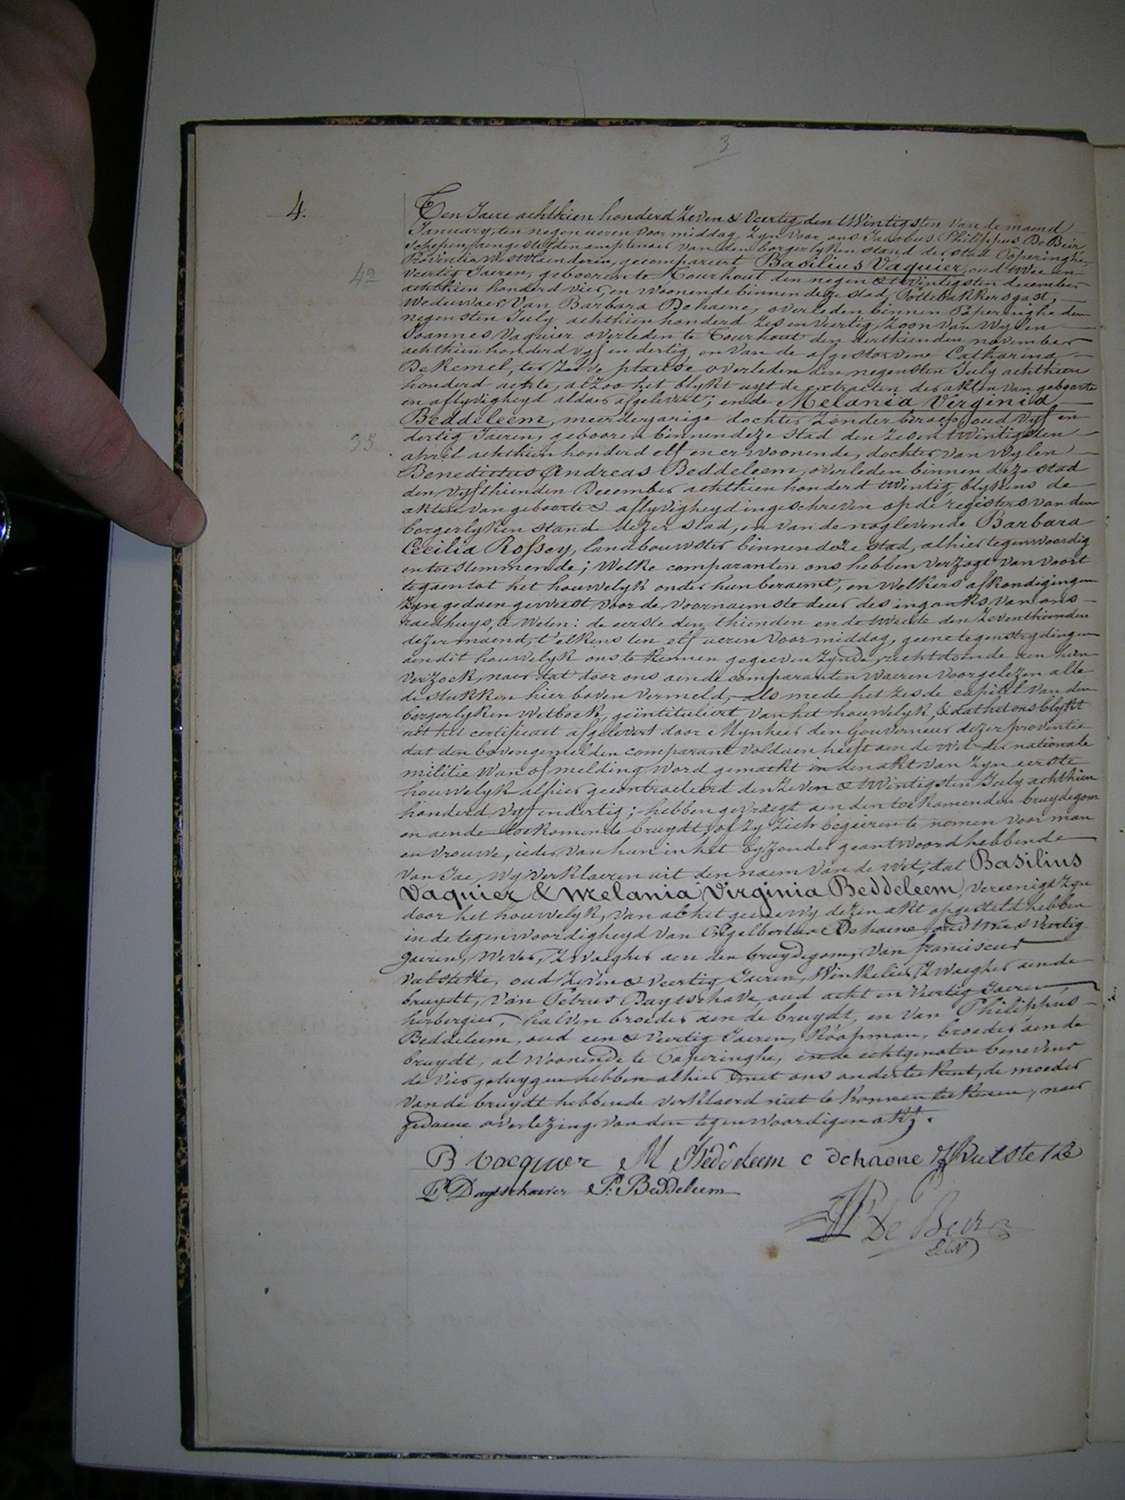 3
4.
Ten Jaere achthien honderd Zeven & Veertig, den twintigsten van de maend
January, ten negen ueren voormiddag, Zyn voor ons Jacobus Philippus De Beir
Schepen, aengestelden amptenaer van den borgerlyken stand der stad Poperinghe,
Provincie Westvlaenderen, gecompareert Basilius Vaquier, oud twee en
42
veertig Jaeren, geboren te Tourhout den negen & twintigsten december
achthien honderd vier, en woonende binnen deze stad, Pottebakkersgast,
Weduwaer Van Barbara Dehaene, overleden binnen Poperinghe den
negensten July achthien honderd zes en veertig, Zoon van wylen
Joannes Vaquier overleden te Tourhout den derthienden november
achthien honderd vyf en dertig, en van de afgestorvene Catharina
De Kemel, ter zelve plaetse overleden den negensten July achthien
honderd achte, alzoo het blykt uyt de extracten der akten van geboorte
en aflyvigheyd aldaer afgelevert; ende Melania Virginia
Beddeleem, meerderjarige dochter zonder beroep, oud vyf en
35
dertig Jaeren, geboren binnen deze stad den zeven twintigsten
april achthien honderd elf en er woonende, dochter van wylen
Benedictus Andreas Beddeleem, overleden binnen deze stad
den vyfthienden December achthien honderd twintig, blykens de
akten van geboorte & aflyvigheyd ingeschreven op de registers van den
borgerlyken stand dezer stad, en van de noglevende Barbara
Cecilia Rossey, landbouwster binnen deze stad, alhier tegenwoordig
en toestemmende; Welke comparanten ons hebben verzogt van voort
te gaen tot het houwelyk onder hun beraemt, en welkers afkondigingen
Zyn gedaen geweest voor de voornaemste deur des ingangs van ons
raedhuys, te weten: de eerste den thienden en de tweede den zeventhienden
dezer maend, t'elkens ten elf ueren voormiddag, geene tegenstrydingen
aen dit houwelyk ons te kennen gegeven zynde, rechtdoende aen hun
verzoek, naer dat door ons aen de comparanten waeren voorgelezen alle
de stukken hier boven vermeld, als mede het zesde capittel van den
borgerlyken wetboek, geïntituleert van het houwelyk, & dat het ons blykt
uit het certificaet afgelevert door Mynheer den Gouverneur dezer provintie
dat den bovengemelden comparant voldaen heeft aen de wet der nationale
militie waer of melding word gemaekt in den akt van zyn eerste
houwelyk alhier gecontracteerd den zeven & twintigsten July achthien
honderd vyf en dertig; hebben gevraegt aen den toekomenden bruydegom
en aende toekomende bruydt, of zy zich begeeren te nemen voor man
en vrouwe, ieder van hun in het byzonder geantwoord hebbende
van Jae, wy verklaeren uit den naem van de wet, dat Basilius
Vaquier & Melania Virginia Beddeleem vereenigd zyn
door het houwelyk, van al het geene wy dezen akt opgesteld hebben
in de tegenwoordigheyd van Engelbertus Dehaene, oud twee & veertig
jaeren, wever, zwagher aen den bruydegom, van franciscus
Vulsteke, oud zeven & veertig Jaeren, Winkelier, zwagher aen de
bruydt, van Petrus Dayschaever, oud acht en veertig Jaeren
herbergier, halven broeder aen de bruydt, en van Philippus
Beddeleem, oud een & veertig Jaeren, Koopman, broeder aen de
bruydt, al woonende te Poperinghe, ende echtgenoten benevens
de vier getuygen hebben alhier met ons onderteekent, de moeder
van de bruydt hebbende verklaerd niet te konnen teekenen, naer
gedaene overlezing van den tegenwoordigen akt.
B Vacquier M Beddeleem E dehaene F Vulsteke
P Dayschaever P. Beddeleem
JP De Beir